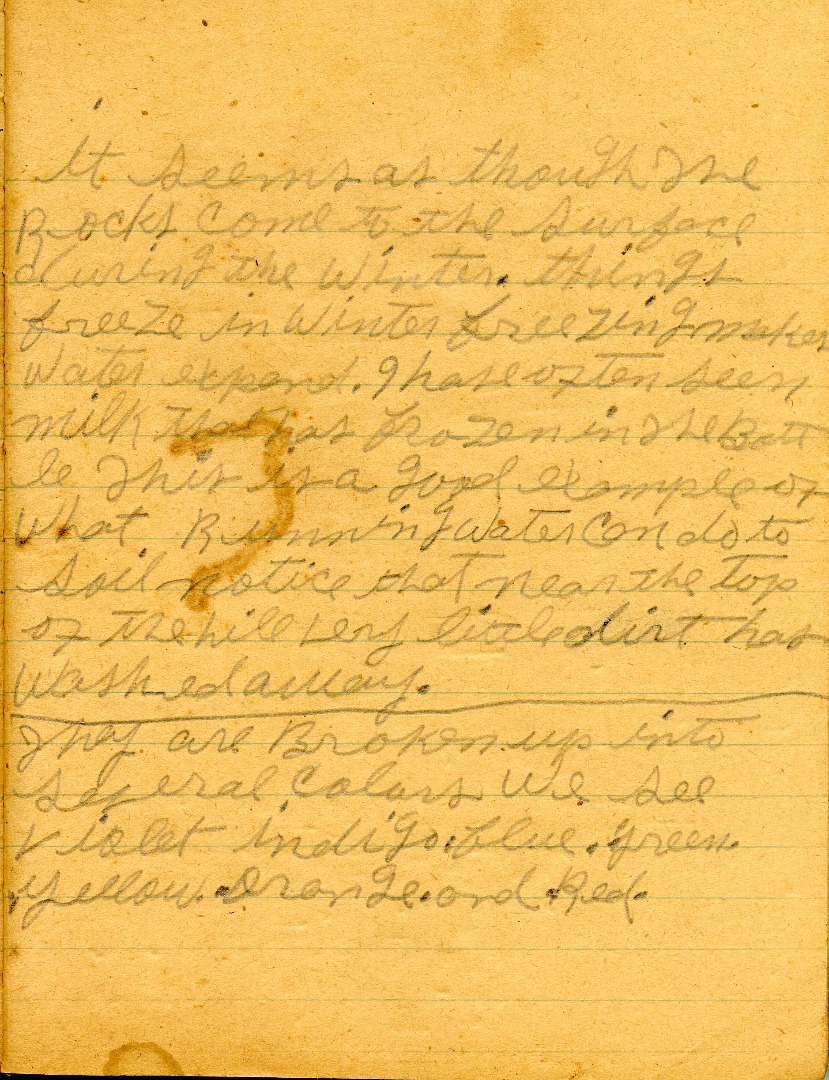 It seems as though The
Rocks Come to the surface
during the Winter. things
freeze in Winter freezing makes
Water expand. I have often seen
milk that has frozen in The Bott
le This is a good example of
What Running Water Can do to
Soil notice that near the top
of The hill very little dirt has
Washed away.
They are Broken up into
several Colors We see
violet indigo. blue. green.
yellow. Orange. and Red.